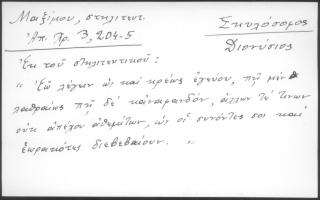 Μαξίμου, στηλιτευτ.
Ἀπ. Χρ. 3, 204-5
Σκυλόσοφος
Διονύσιος
Ἐκ τοῦ στηλιτευτικοῦ:
" Ἐῶ λέγειν ὡς καὶ κρέως ἐγεύου, πῇ μὲν
λαθραίως πῇ δὲ ἀναφανδόν, ἄλλων τέ τινων
οὐκ ἀπέχου ἀθεμίτων, ὡς οἱ συνόντες σοι καὶ
ἑωρακότες διεβεβαίουν. "